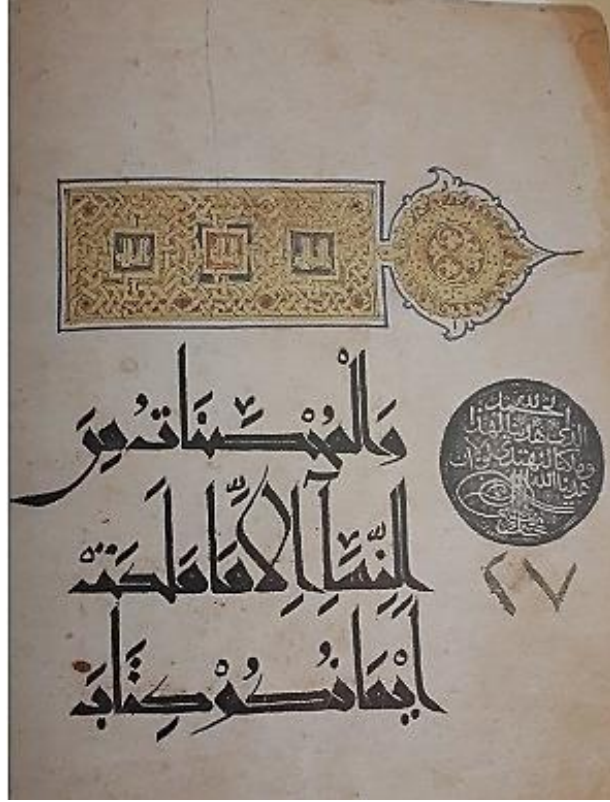 وَالْمُحْصَنَاتُ مِنَ
النِّسَآءِ اِلَّا مَا مَلَكَتْ
اَيْمَانُكُمْ كِتَابَ
الحمد لله
الذى هدانا لهذا
وما كنا لنهتدى لولا ان
هدانا الله
٢٧